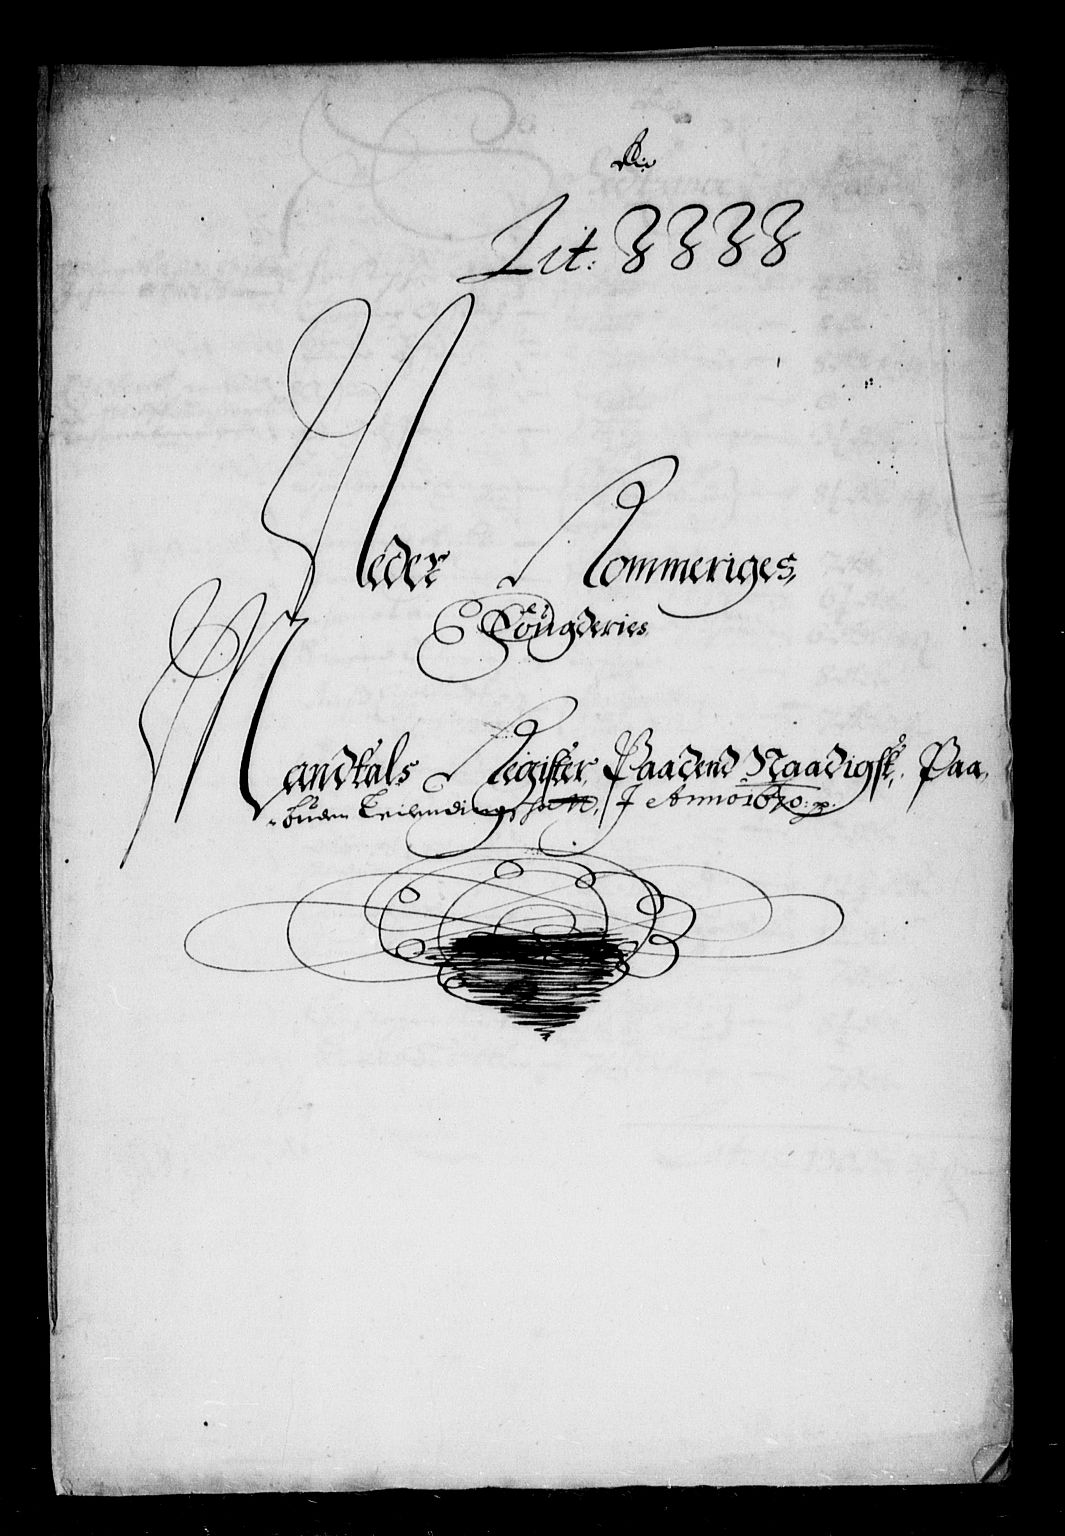 Lit: 3333
Neder Rommeriges,
Fougderies
Mandtals Register, Paadend Naadigst, Paa,
buden I Anno 1670: p.